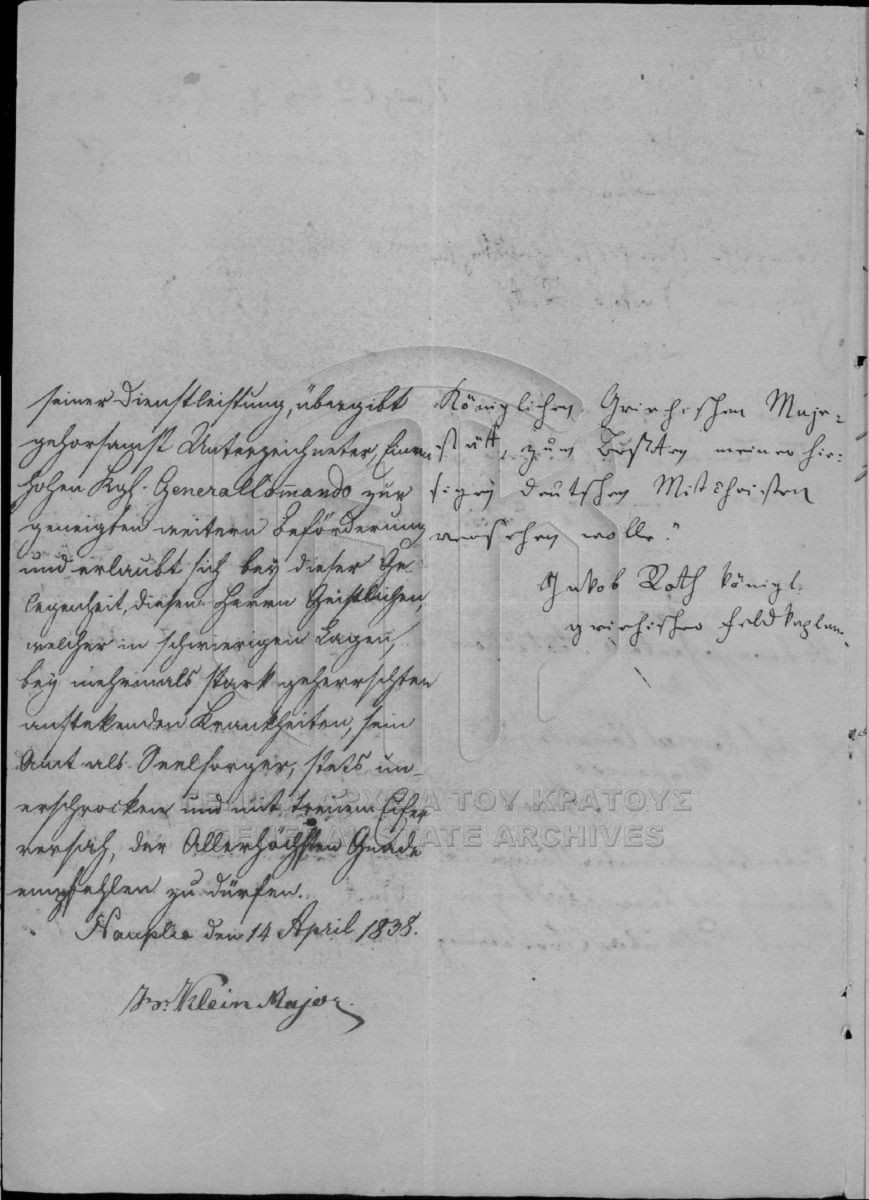 seiner Dienstleistung, übergibt
gehorsamst Unterzeichneter, Einem
hohen Kgl. General Com̄ando zur
geneigten weitern Beförderung
und erlaubt sich bey dieser Ge-
legenheit, diesen Herrn Geistlichen,
welcher in schwierigen Lagen,
bey mehrmals stark geherrschten
anstekenden Krankheiten, sein
Amt als Seelsorger, stets un-
erschrocken und mit treuem Eifer
versah, der Allerhöchsten Gnade
empfehlen zu dürfen.
Nauplia den 14 April 1838.
Klein Major
Königlichen Griechischen Maje-
stätt, zum Besten meiner hie-
sigen deutschen Mitchristen
wolle."
Jakob Roth königl.
griechischer Feldkaplan.
ΓΕΝΙΚΑ ΑΡΧΕΙΑ ΤΟΥ ΚΡΑΤΟΥΣ
GENERAL STATE ARCHIVES